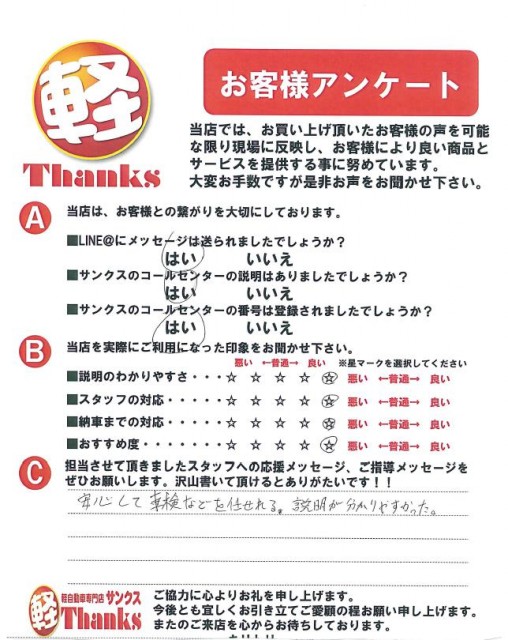 軽
Thanks
お客様アンケート
当店では、お買い上げ頂いたお客様の声を可能
な限り現場に反映し、お客様により良い商品と
サービスを提供する事に努めています。
大変お手数ですが是非お声をお聞かせ下さい。
A 当店は、お客様との繋がりを大切にしております。
■LINE@にメッセージは送られましたでしょうか？
はい いいえ
■サンクスのコールセンターの説明はありましたでしょうか？
はい いいえ
■サンクスのコールセンターの番号は登録されましたでしょうか？
はい いいえ
B 当店を実際にご利用になった印象をお聞かせ下さい。
悪い ←普通→ 良い ※星マークを選択してください
■説明のわかりやすさ・・・☆ ☆ ☆ ☆ ☆ 悪い ←普通→ 良い
■スタッフの対応・・・・・☆ ☆ ☆ ☆ ☆ 悪い ←普通→ 良い
■納車までの対応・・・・・☆ ☆ ☆ ☆ ☆ 悪い ←普通→ 良い
■おすすめ度・・・・・・・☆ ☆ ☆ ☆ ☆ 悪い ←普通→ 良い
C 担当させて頂きましたスタッフへの応援メッセージ、ご指導メッセージを
ぜひお願いします。沢山書いて頂けるとありがたいです！！
安心して車検などを任せれる。説明が分かりやすかった。
軽 軽自動車専門店 サンクス
Thanks
ご協力に心よりお礼を申し上げます。
今後とも宜しくお引き立てご愛顧の程お願い申し上げます。
またのご来店を心からお待ちしております。